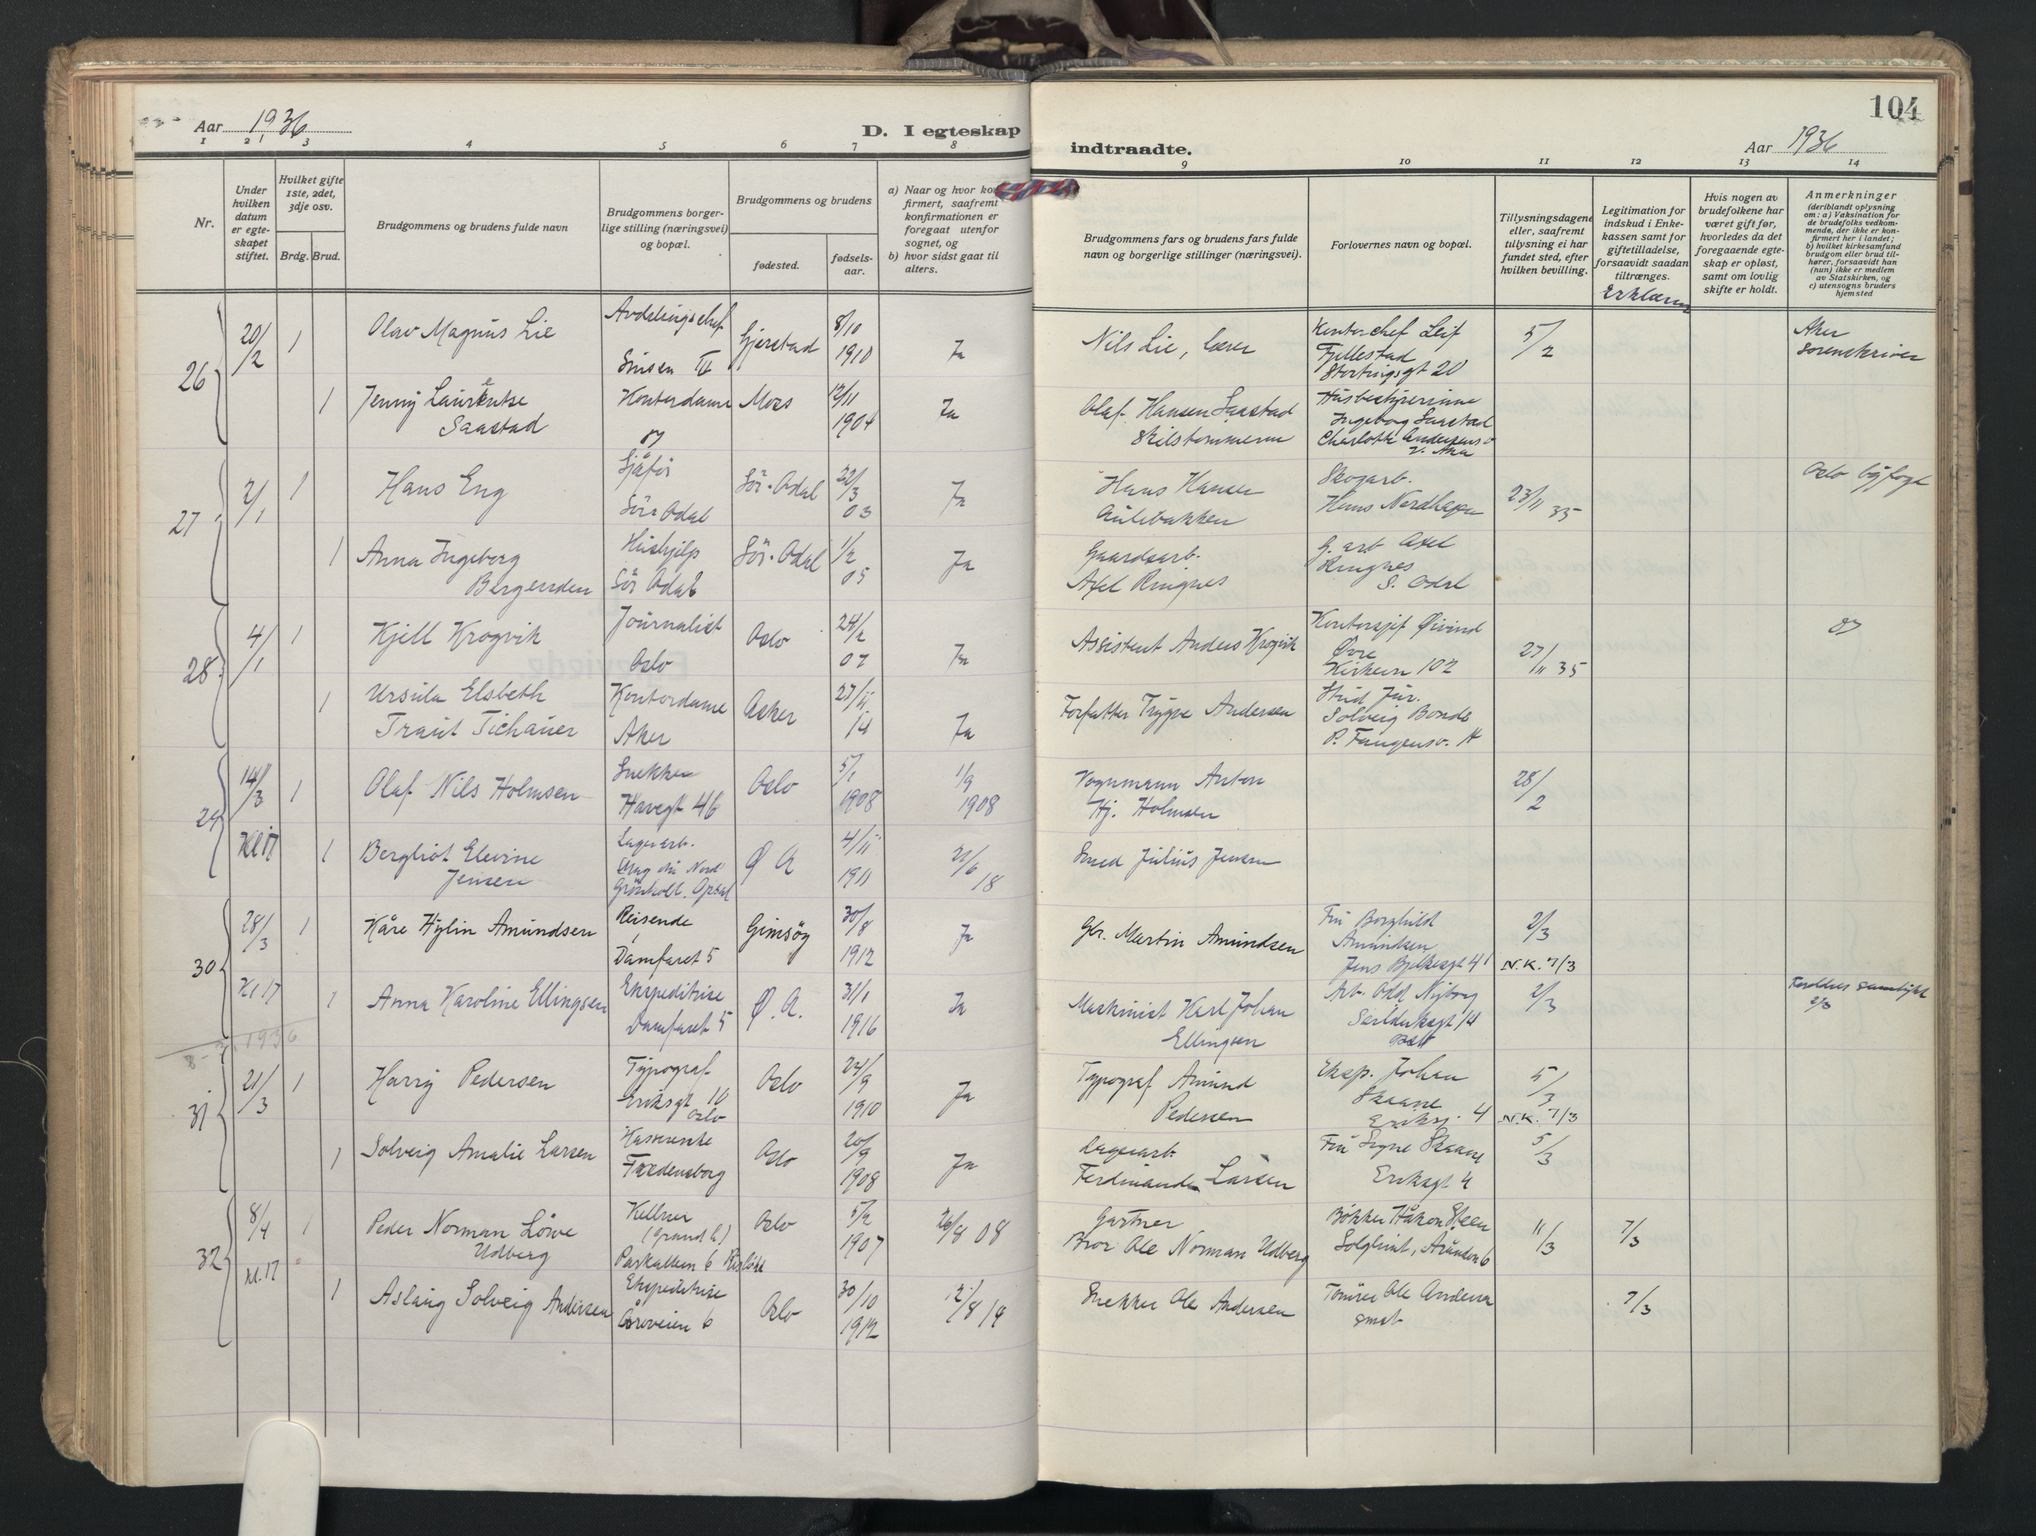 104
Aar 1936
D. I egteskap
indtraadte.
Aar 1936
1 2 3 4 5 6 7 8
9 10 11 12 13 14
Nr.
Under hvilken datum er egteskapet stiftet.
Hvilket gifte 1ste, 2det, 3dje osv.
Brdg. Brud.
Brudgommens og brudens fulde navn
Brudgommens borgerlige stilling (næringsvei) og bopæl.
Brudgommens og brudens
fødested.
fødselsaar.
a) Naar og hvor konfirmert, saafremt konfirmationen er foregaat utenfor sognet, og
b) hvor sidst gaat til alters.
Brudgommens fars og brudens fars fulde navn og borgerlige stillinger (næringsvei).
Forlovernes navn og bopæl.
Tillysningsdagene eller, saafremt tillysning ei har fundet sted, efter hvilken bevilling.
Legitimation for indskud i Enkekassen samt for giftetilladelse, forsaavidt saadan tiltrænges.
Hvis nogen av brudefolkene har været gift før, hvorledes da det foregaaende egteskap er opløst, samt om lovlig skifte er holdt.
Anmerkninger
(deriblandt oplysning om: a) Vaksination for de brudefolks vedkommende, der ikke er konfirmert her i landet; b) hvilket kirkesamfund brudgom eller brud tilhører, forsaavidt han (hun) ikke er medlem av Statskirken, og c) utensogns bruders hjemsted
26 20/2 1 Olav Magnus Lie Avdelingschef Sinsen Gjerstad 8/10 1910 Ja
Nils Lie, lærer Kontorchef Leif Fjellestad Stortingsgt 20 5/2 Aker Sorenskriver
1 Jenny Laurentse Saastad Kontordame Moss 12/11 1904 Ja
Olaf Hansen Saastad Ingeborg Saastad
27 2/1 1 Hans Eng Sjåfør Sör Odal Sör-Odal 22/3 03 Ja
Hans Hansen Skogarb. Hans Nordhagen 23/11 35 Oslo byfogt
1 Anna Ingeborg Bergenden Hushjelp Sör Odal Sör-Odal 1/2 05 Ja
Gaardsarb. Axel Ringnes G. arb Axel Ringnes S. Odal
28 4/1 1 Kjell Krogvik Journalist Oslo Oslo 24/2 07 Ja
Assistent Anders Krogvik Kontorsjef Øivind Øvre Kirkevn 102 27/11 35
1 Ursula Elsbeth Traut Tichauer Kontordame Aker Asker 27/11 14 Ja
Forfatter Trygve Andersen Stud Jur. Solveig Bonde P. Fangensv.
29 14/3 1 Olaf Nils Holmsen Snekker Havegt 46 Oslo 5/1 1908 1/9 1908
Vognmann Anton Hj. Holmsen 28/2
Kl 17 1 Bergliot Elevine Jensen Lagerarb. Ø A 4/11 1911 21/6 18
Smed Julius Jensen
30 28/3 1 Kåre Hylin Amundsen Reisende Damfaret 5 Gimsøy 30/8 1912 Ja
Gbr. Martin Amundsen Fru Borghild Amundsen Jens Bjelkesgt 41 2/3 N.K. 7/3
Kl 17 1 Anna Karoline Ellingsen Ekspeditrise Damfaret 5 Ø. A. 31/1 1916 Ja
Maskinist Karl Johan Ellingsen Arb. Odd Nyborg 2/3
31 21/3 1 Harry Pedersen Typograf Eriksgt 10 Oslo Oslo 24/9 1910 Ja
Typograf Amund Pedersen Eksp. Johan Skaane 5/3 N.K. 7/3
1 Solveig Amalie Larsen Fredensborg Oslo 20/9 1908 Ja
Lagerarb Ferdinand Larsen Fru Signe Skaane Eriksgt 4 5/3
32 8/4 1 Peder Norman Löwe Udberg Kellner (Grand h) Parkalleen 6 Oslo 5/2 1907 26/8 08
Gartner Bror Ole Norman Udberg Bøkker Håkon Steen 11/3 7/3
kl. 17 1 Aslaug Solveig Andersen Ekspeditrise 6 Oslo 30/10 1912 12/8 19
Snekker Ole Andersen Tömrer Ole Andersen smst 7/3